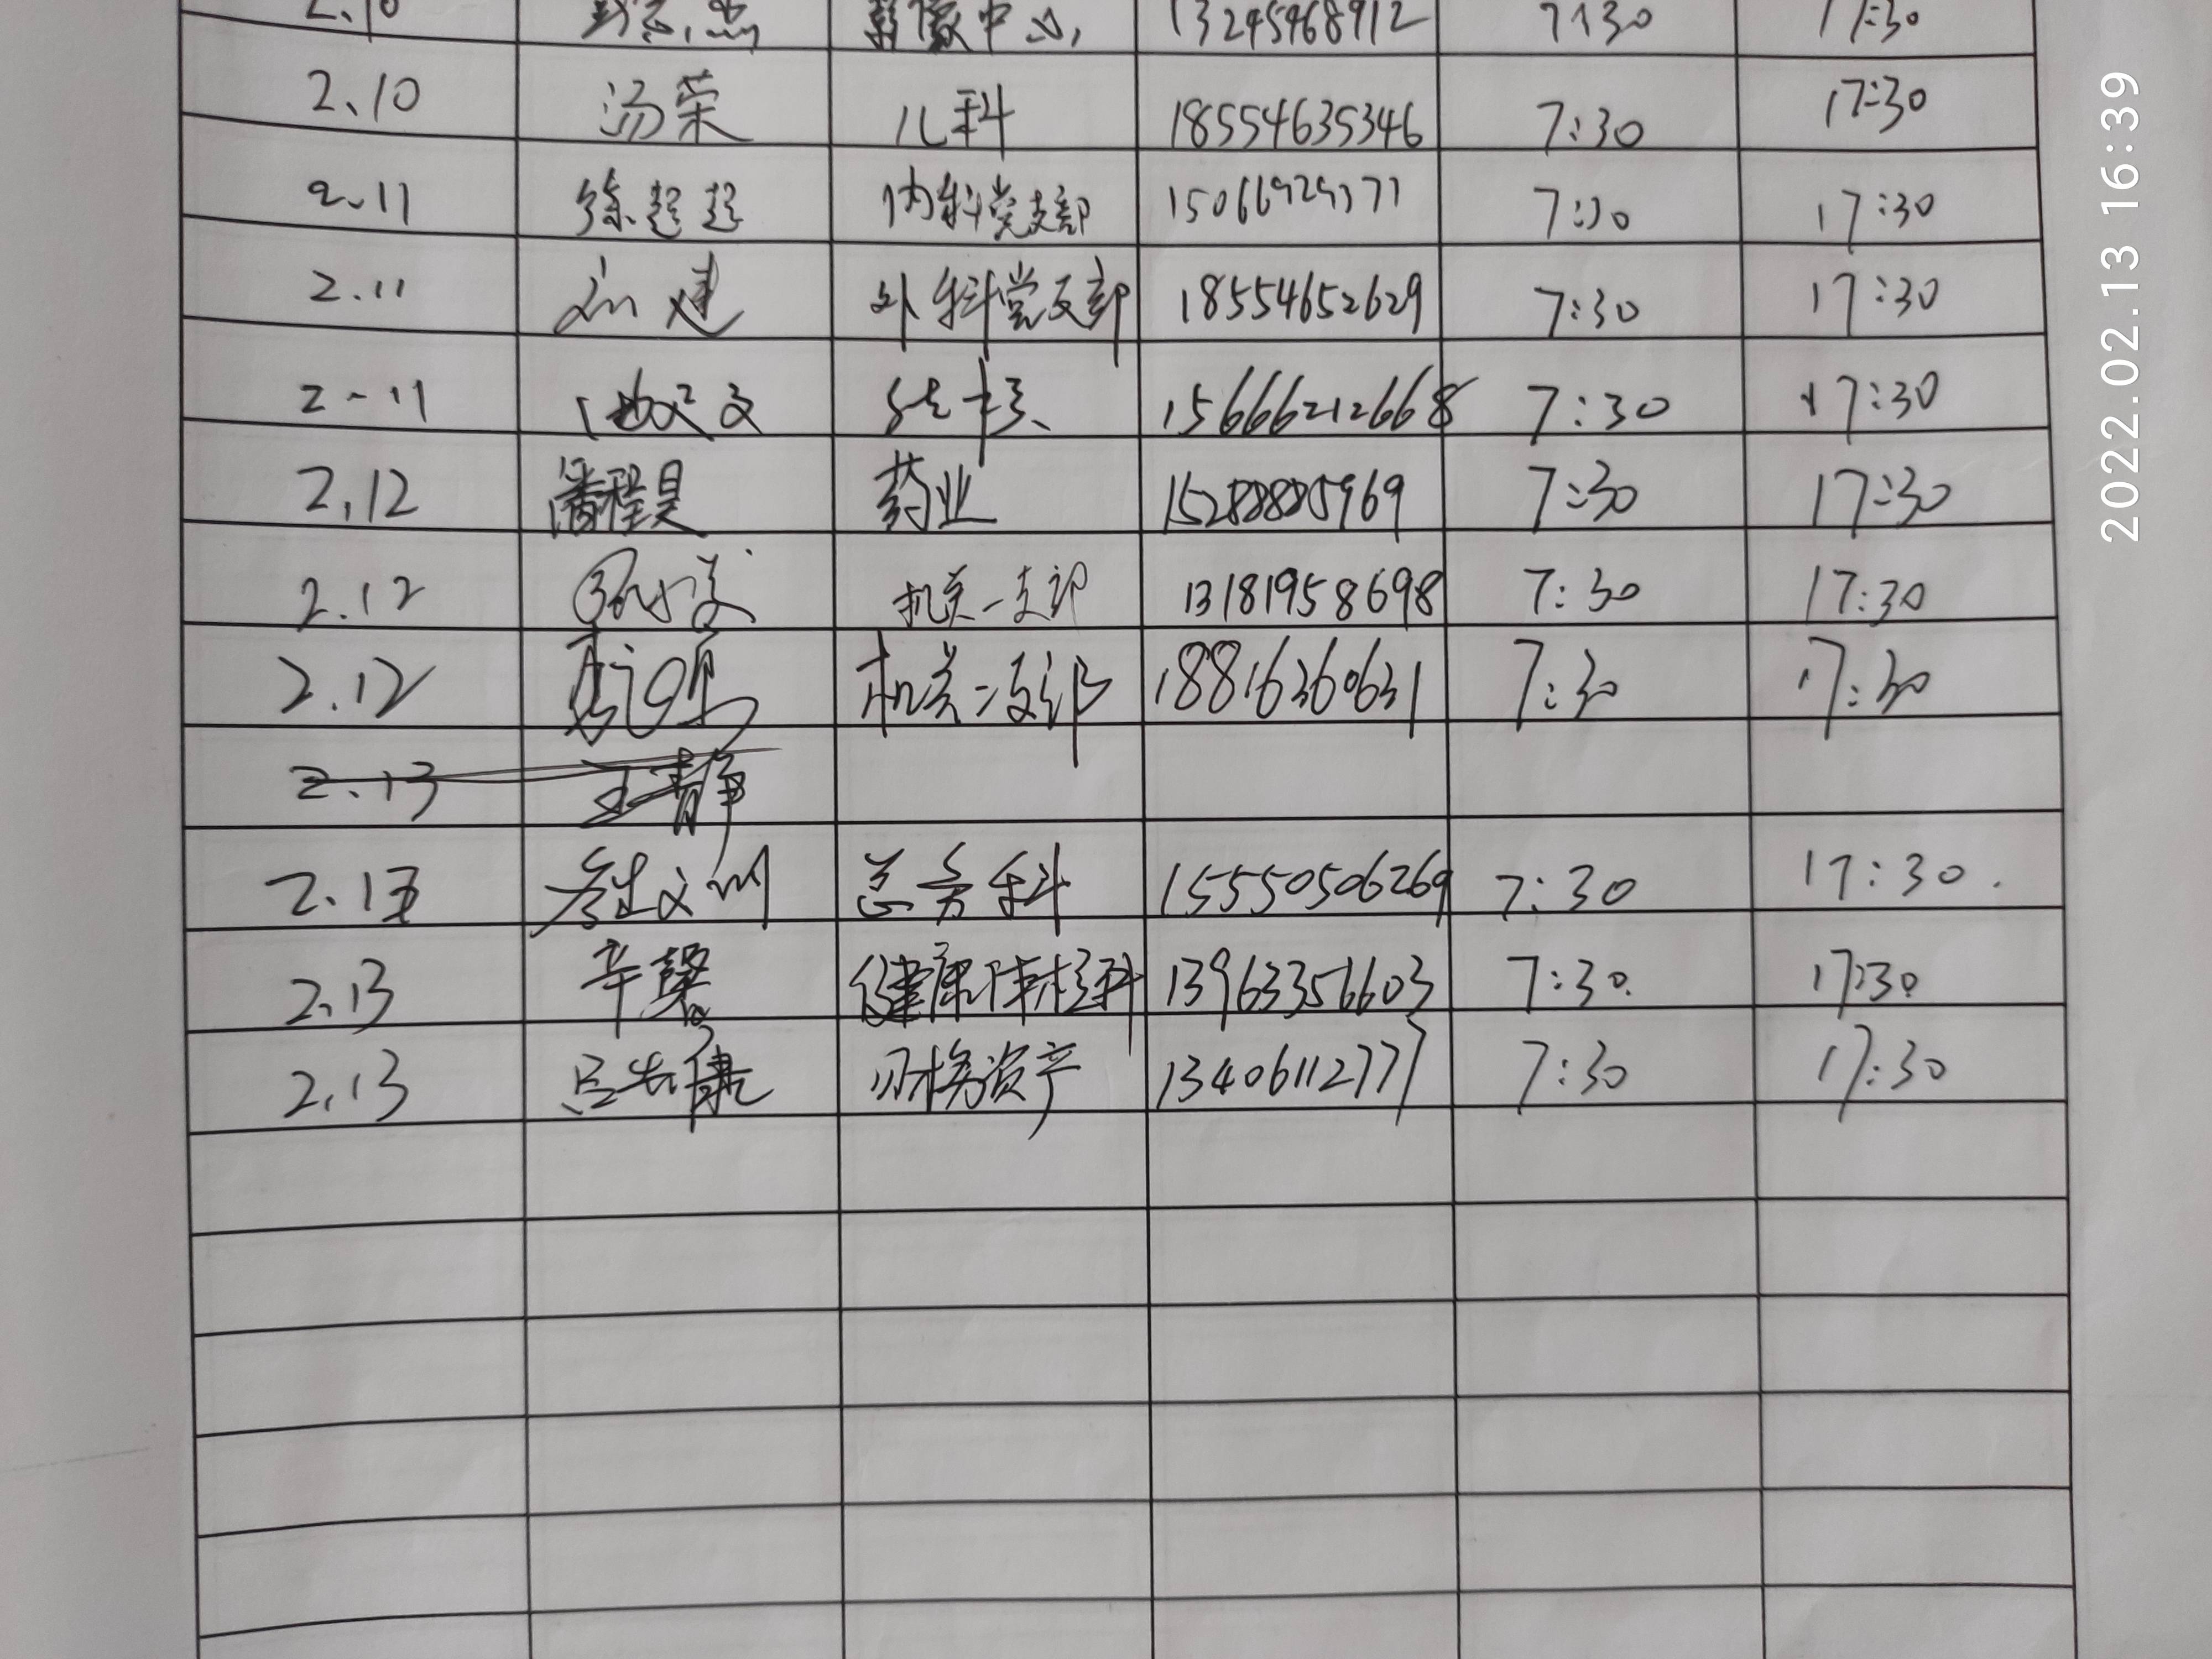 2.10 影像中心 13245968912 7:30 17:30
2.10 汤荣 儿科 18554635346 7:30 17:30
2.11 徐超超 内科党支部 7:30 17:30
2.11 建 外科党支部 18554652629 7:30 17:30
2-11 15666212668 7:30 17:30
2.12 潘程昊 药业 15288885969 7:30 17:30
2.12 机关一支部 13181958698 7:30 17:30
2.12 机关二支部 18816360631 7:30 17:30
2.13 王静
2.13 总务科 15550506269 7:30 17:30.
2.13 辛馨 健康体检科 13963356603 7:30. 17:30
2.13 吕 康 财务资产 13406112777 7:30 17:30
2022.02.13 16:39